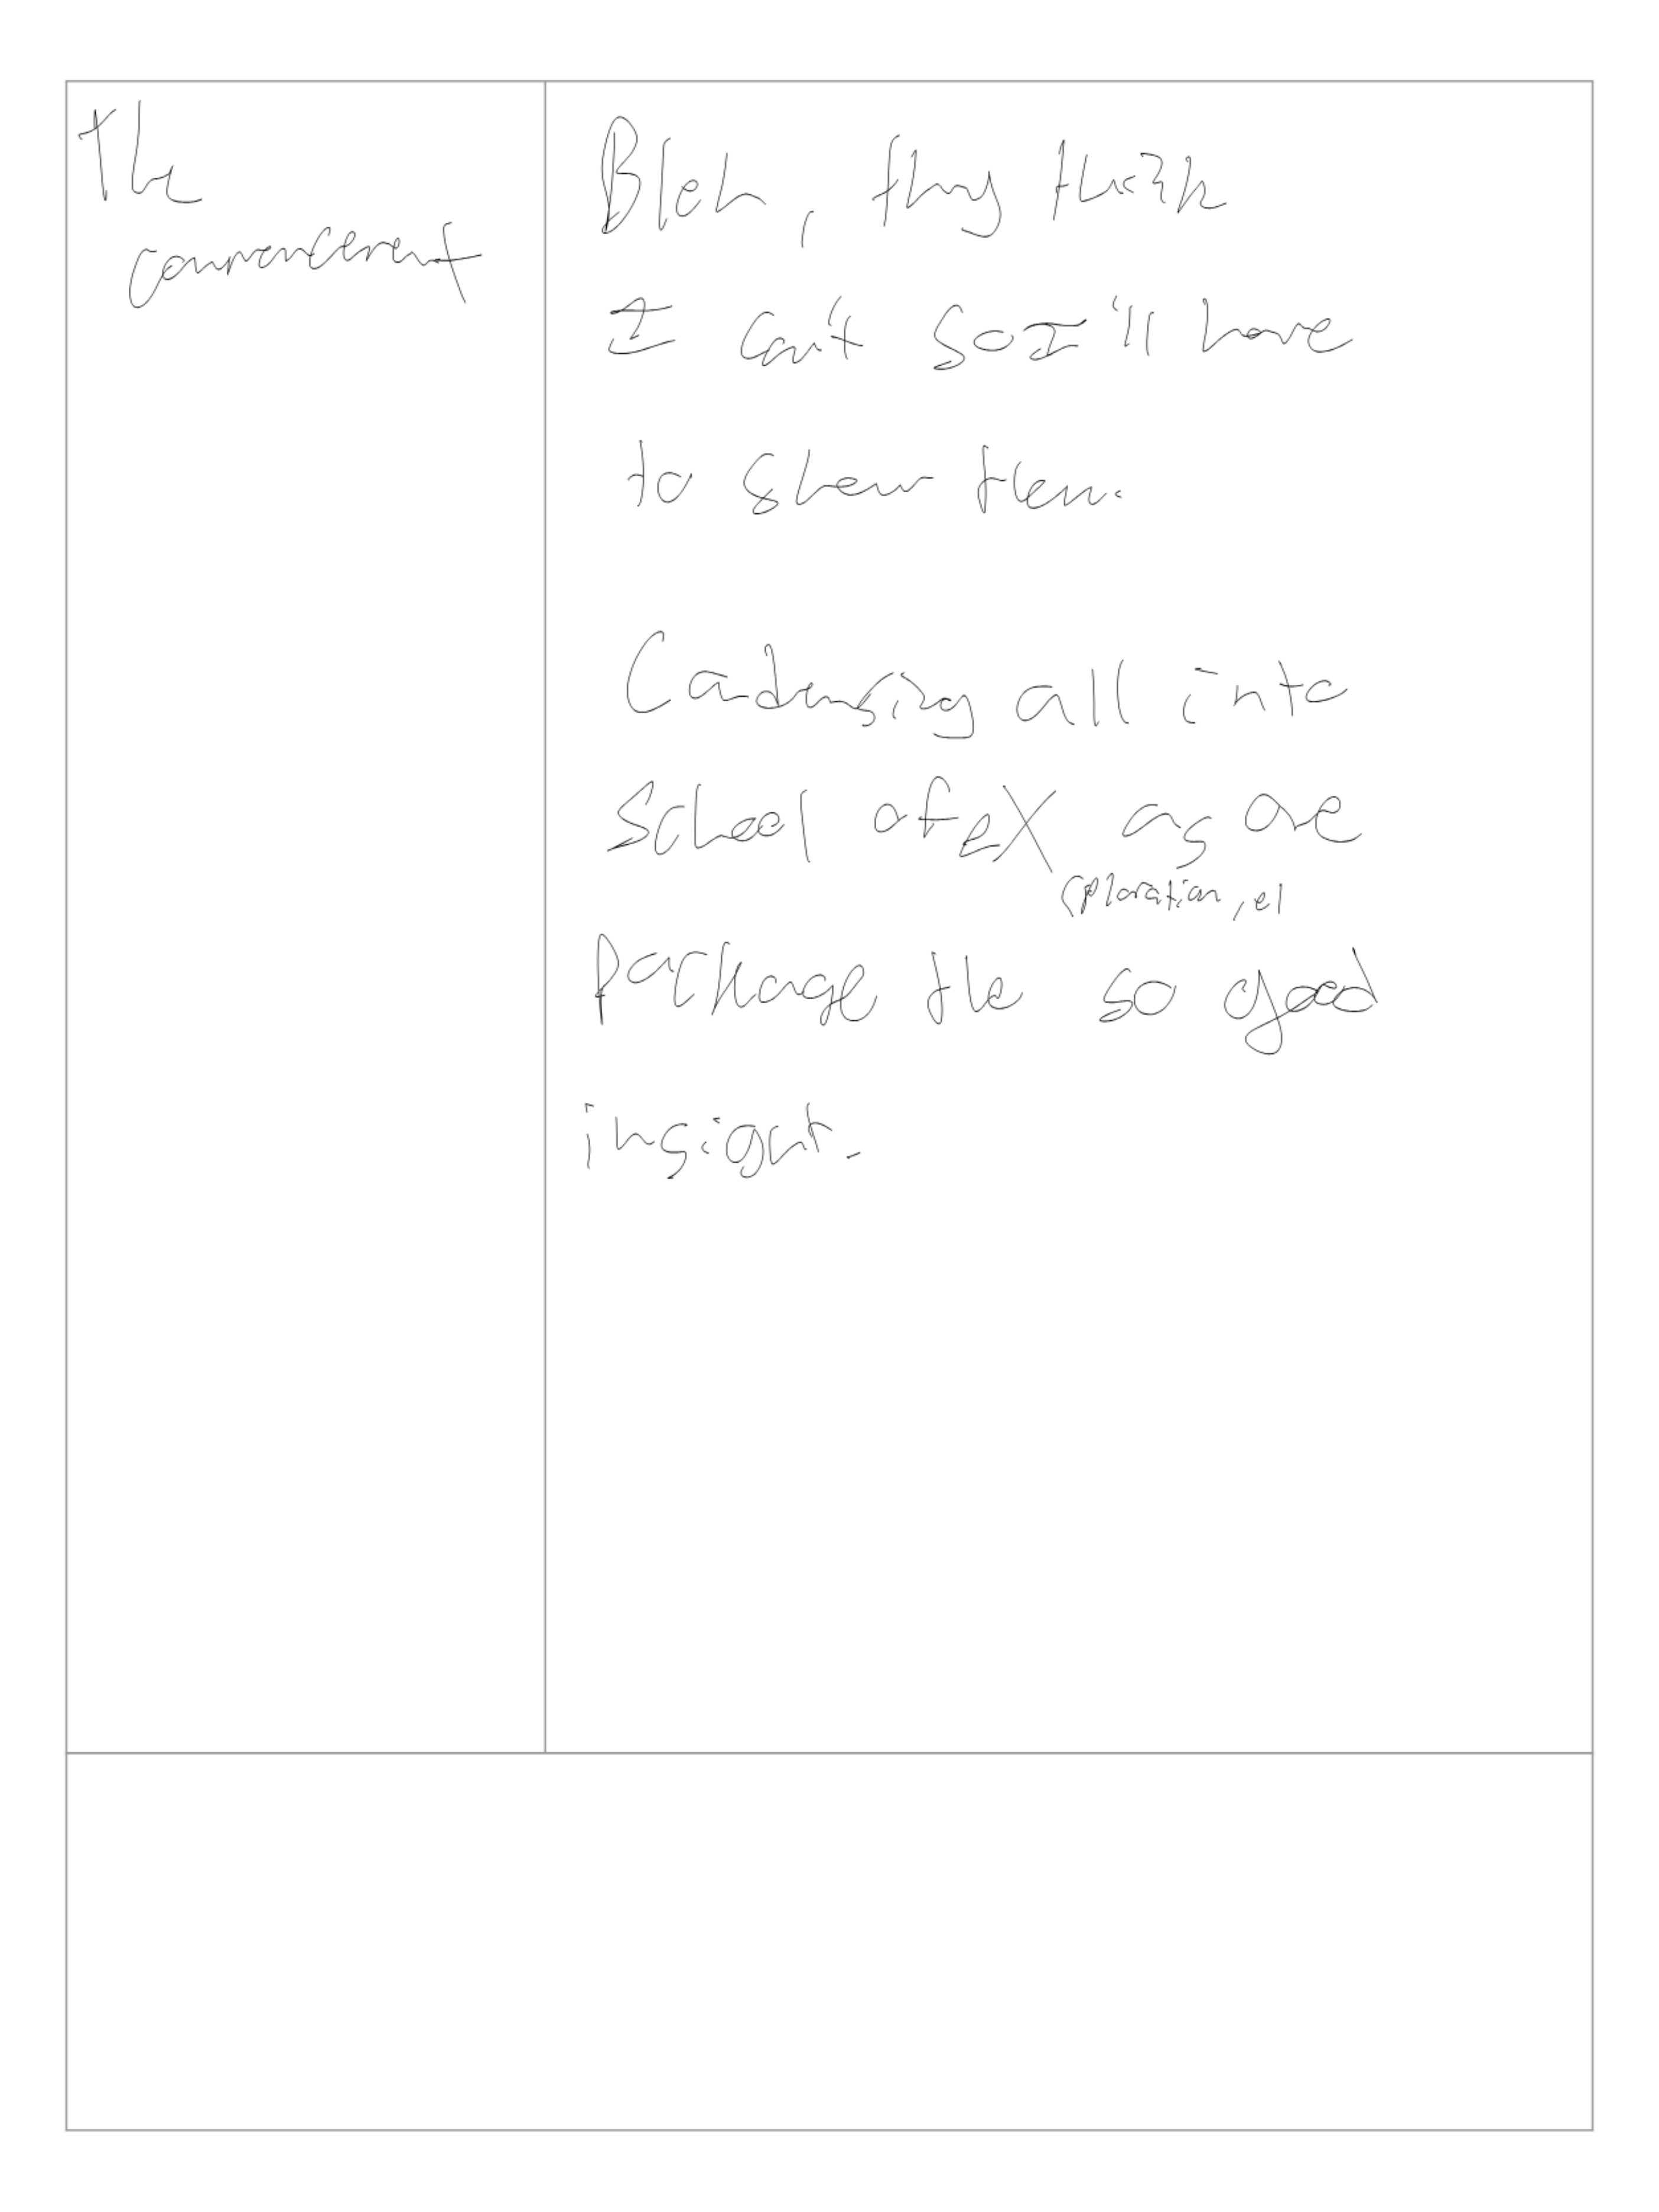 The
commencement
Bleh, they think
I can't so I'll have
to show them.
Condensing all into
School of eX as one
(ploration, el
package the so good
insight.